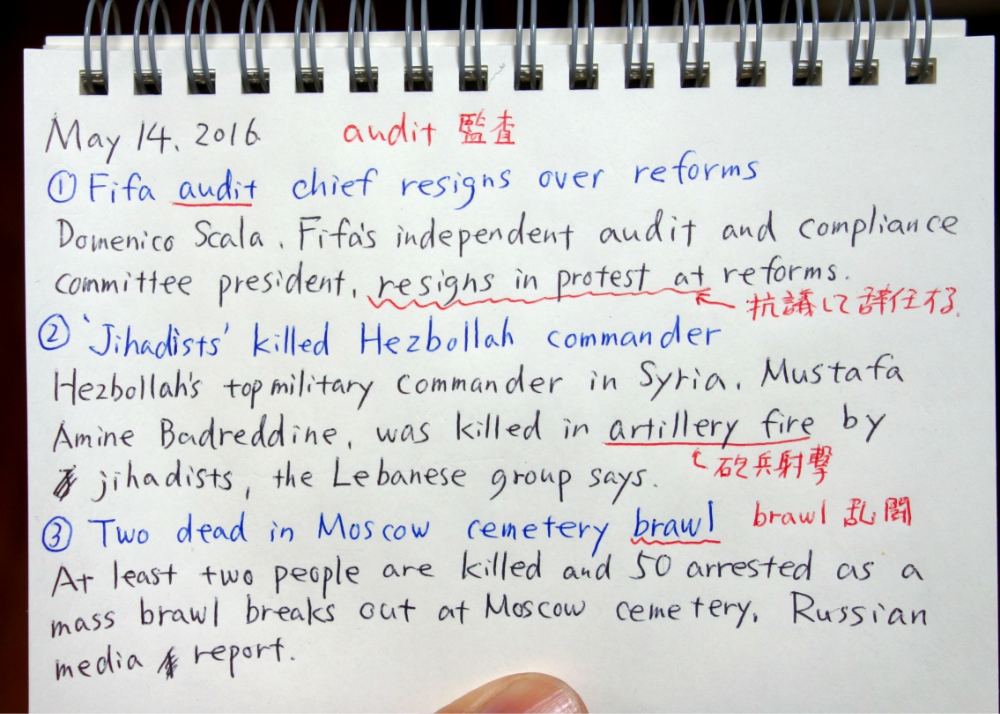 May 14, 2016 audit 監査
① Fifa audit chief resigns over reforms
Domenico Scala, Fifa's independent audit and compliance
committee president, resigns in protest at reforms.
抗議して辞任する.
② 'Jihadists' killed Hezbollah commander
Hezbollah's top military commander in Syria, Mustafa
Amine Badreddine, was killed in artillery fire by
jihadists, the Lebanese group says.
砲兵射撃
③ Two dead in Moscow cemetery brawl brawl 乱闘
At least two people are killed and 50 arrested as a
mass brawl breaks out at Moscow cemetery, Russian
media report.